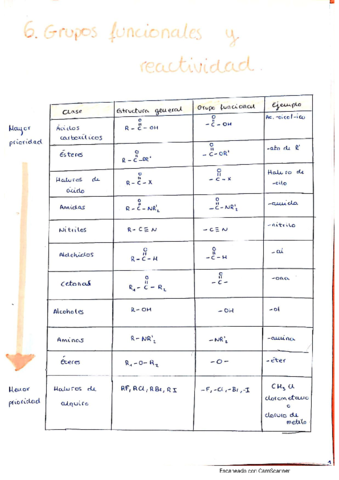 6. Grupos funcionales y
reactividad.
Clase Estructura general Grupo funcional Ejemplo
Mayor
prioridad
Ácidos
carboxílicos
O
R - C - OH
O
- C - OH
Ésteres
O
R - C - OR'
O
- C - OR'
-ato de R'
Haluros de
ácido
O
R - C - X
O
- C - X
Haluro de
-ilo
Amidas
O
R - C - NR'₂
O
- C - NR'₂
-amida
Nitrilos R - C ≡ N - C ≡ N -nitrilo
Aldehídos
O
R - C - H
O
- C - H
-al
Cetonas
O
R₁ - C - R₂
O
- C -
-ona
Alcoholes R - OH - OH -ol
Aminas R - NR'₂ - NR'₂ -amina
Éteres R₁ - O - R₂ - O - -éter
prioridad
Haluros de
alquilo
RF, RCl, RBr, RI -F, -Cl, -Br, -I
CH₃Cl
clorometano
o
cloruro de
metilo
Escaneado con CamScanner